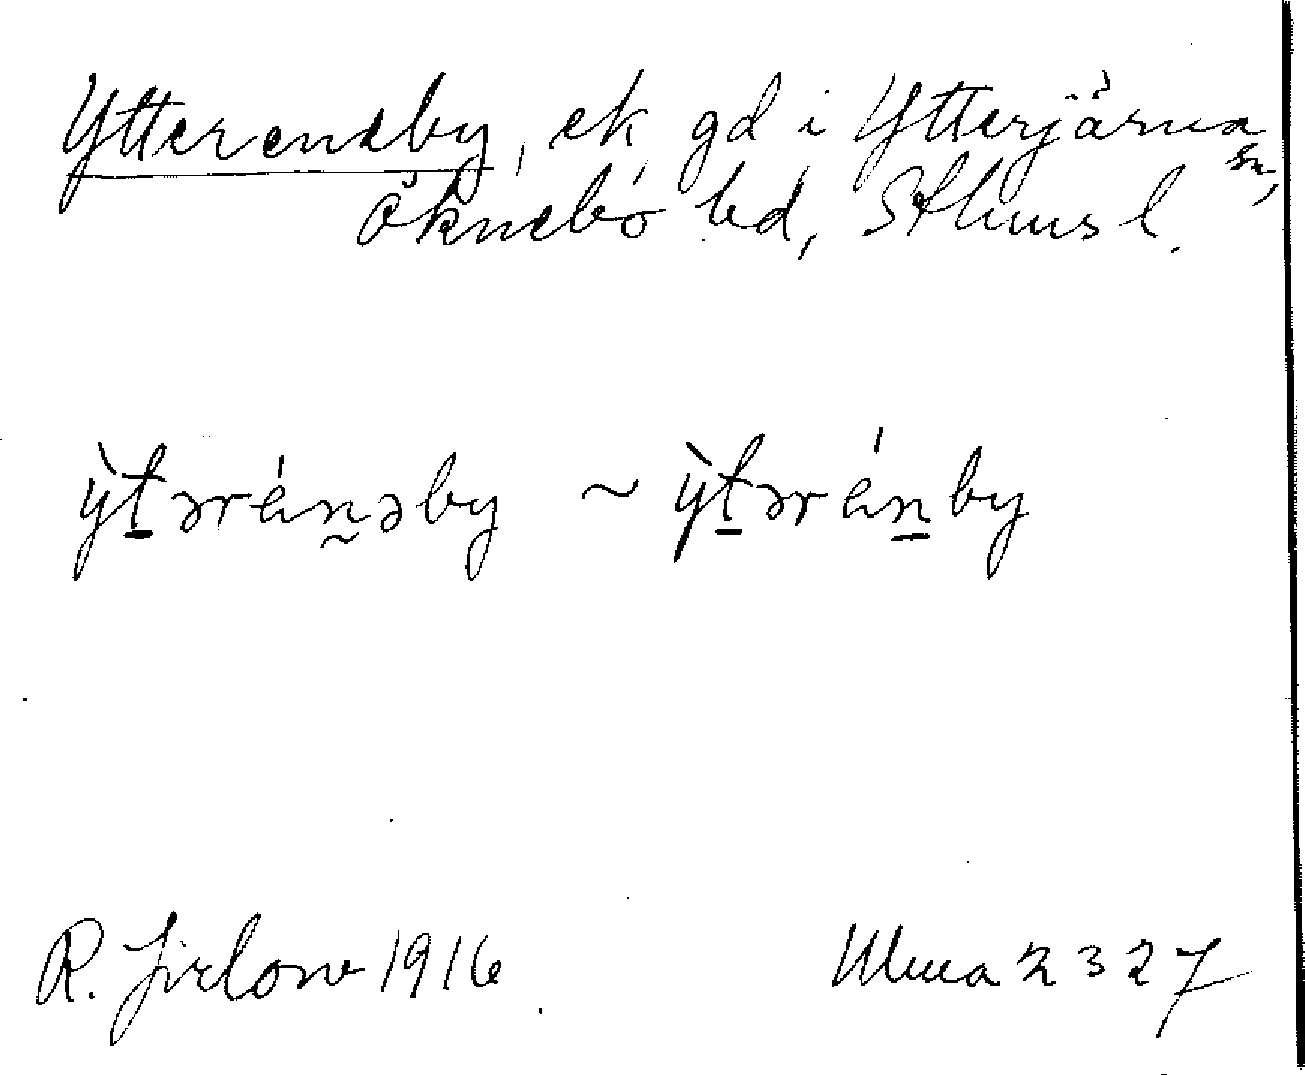 Yttereneby, ek gd i Ytterjärna sn,
Öknebo hd, Sthms l.
ỳt̲ərén̰əby ~ ỳt̲ərén̲by
R. Jirlow 1916
Ulma 2327